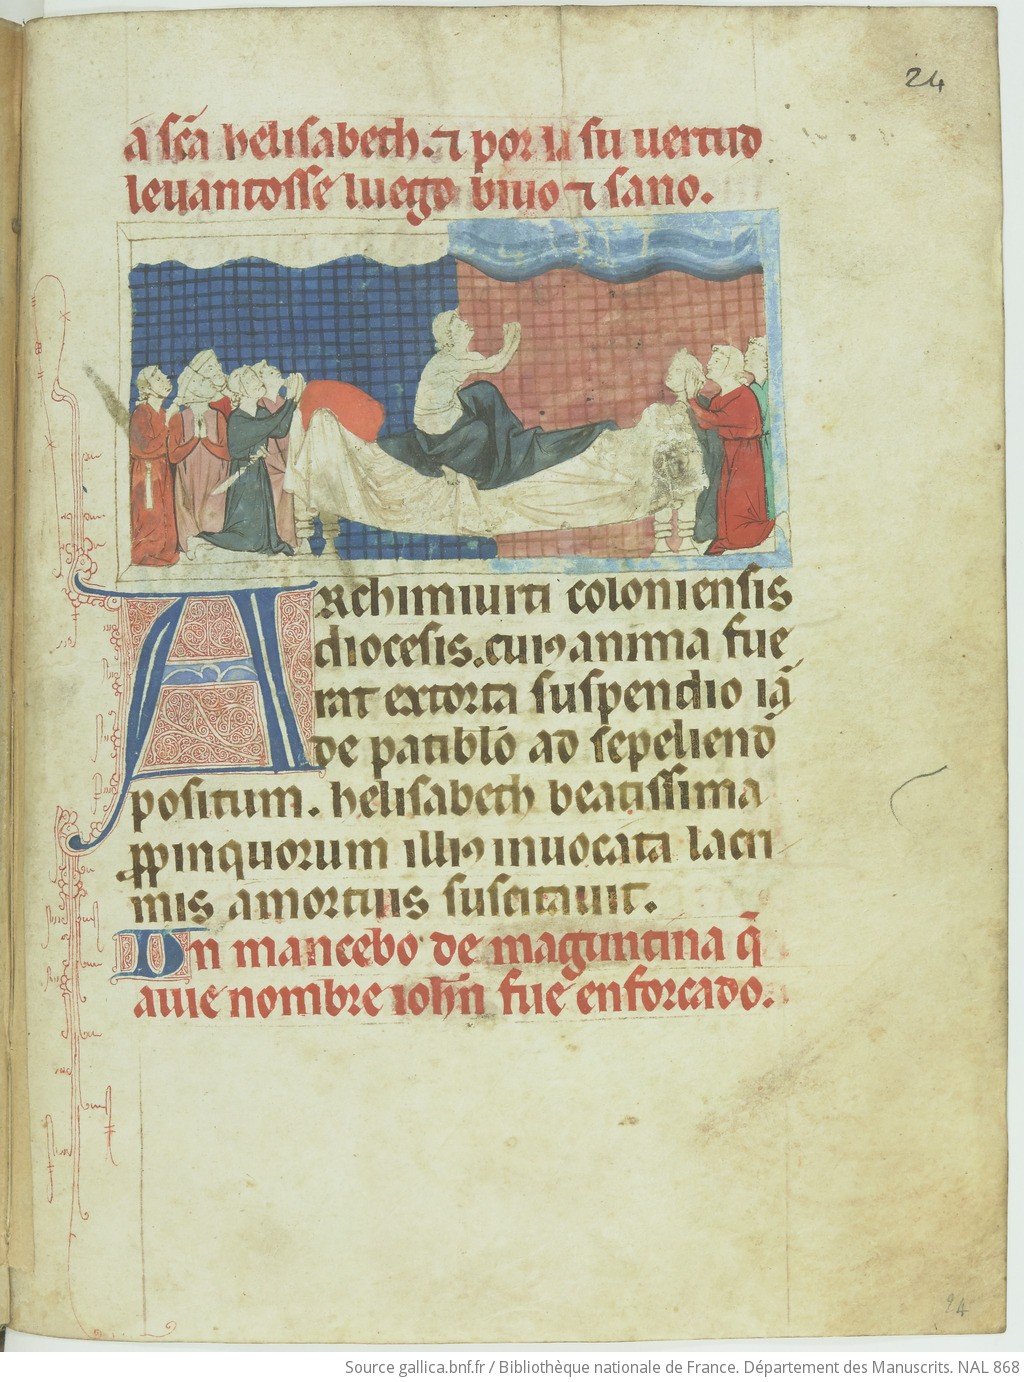 24
a sc̄a helisabeth. ⁊ por la su uertud
leuantosse luego biuo ⁊ sano.
Archimiurti coloniensis
diocesis. cuiꝯ anima fue
rat extorta suspendio iā
de patiblo᷑ ad sepeliend̄
positum. helisabeth beatissima
ꝓpinquorum illiꝯ inuocata lacri
mis amortius suscitauit.
Un mancebo de maguntina q̄
auie nombre ioh̄n fue enforcado.
94
Source gallica.bnf.fr / Bibliothèque nationale de France. Département des Manuscrits. NAL 868